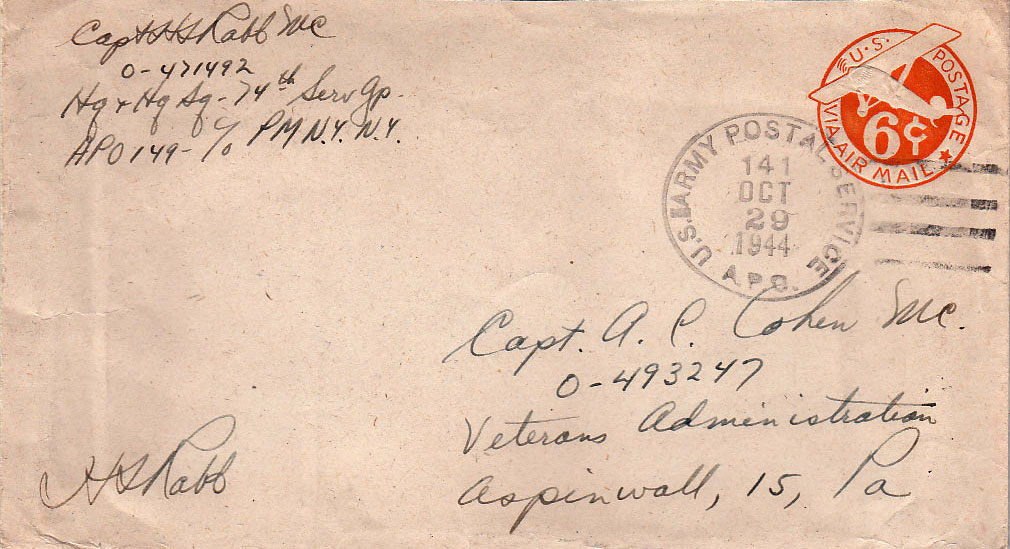 Capt H S Rabb MC
O-471492
Hq & Hq Sq - 74th Serv Gp.
APO 149 - c/o PM N.Y. N.Y.
U.S. POSTAGE
6¢
VIA AIR MAIL
U.S. ARMY POSTAL SERVICE
141
OCT
29
1944
A.P.O.
Capt. A. C. Cohen MC.
O-493247
Veterans Administration
Aspinwall, 15, Pa
H S Rabb